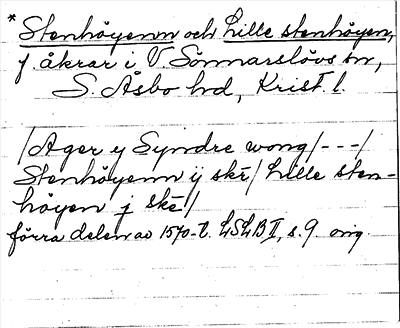 * Stenhöyenn och Lille stenhöyen,
f. åkrar i V. Sönnarslövs sn,
S. Åsbo hd, Krist. l.
/Ager y Syndre wong/---/
Stenhöyenn ij skē/ Lille sten-
höyen j skē/
förra delen av 1570-t. LSLB II, s. 9 orig.